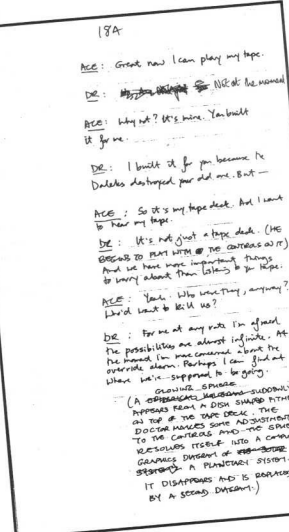 18A
ACE: Great now I can play my tape.
DR: Not at the moment
ACE: Why not? It's mine. You built
it for me.
DR: I built it for you because the
Daleks destroyed your old one. But —
ACE: So it's my tape deck. And I want
to hear my tape.
DR: It's not just a tape deck. (HE
BEGINS TO PLAY WITH THE CONTROLS ON IT)
And we have more important things
to worry about than listening to your tape.
ACE: Yeah. Who were they, anyway?
Who'd want to kill us?
DR: For me at any rate I'm afraid
the possibilities are almost infinite. At
the moment I'm more concerned about the
override alarm. Perhaps I can find out
where we're supposed to be going.
GLOWING SPHERE
(A SUDDENLY
APPEARS FROM A DISH SHAPED
ON TOP OF THE TAPE DECK. THE
DOCTOR MAKES SOME ADJUSTMENTS
TO THE CONTROLS AND THE SPHERE
RESOLVES ITSELF INTO A
GRAPHICS DIAGRAM OF
A PLANETARY SYSTEM.
IT DISAPPEARS AND IS REPLACED
BY A SECOND DIAGRAM.)